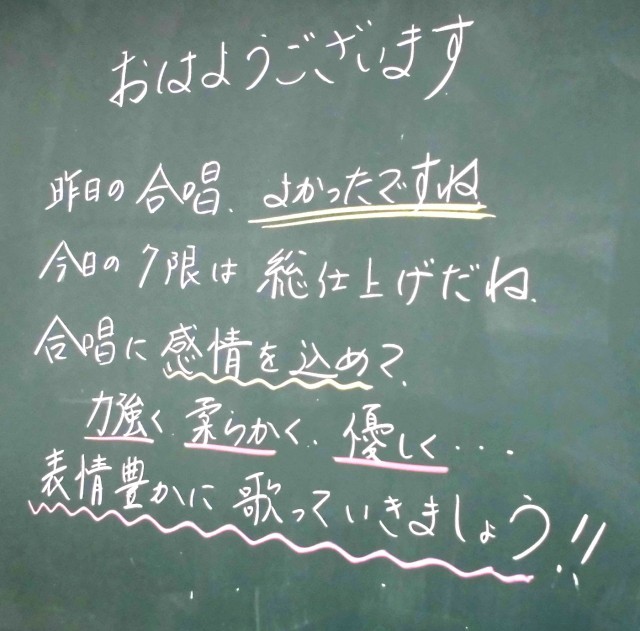 おはようございます
昨日の合唱、よかったですね。
今日の7限は総仕上げだね。
合唱に感情を込めて、
力強く、柔らかく、優しく・・・
表情豊かに歌っていきましょう!!